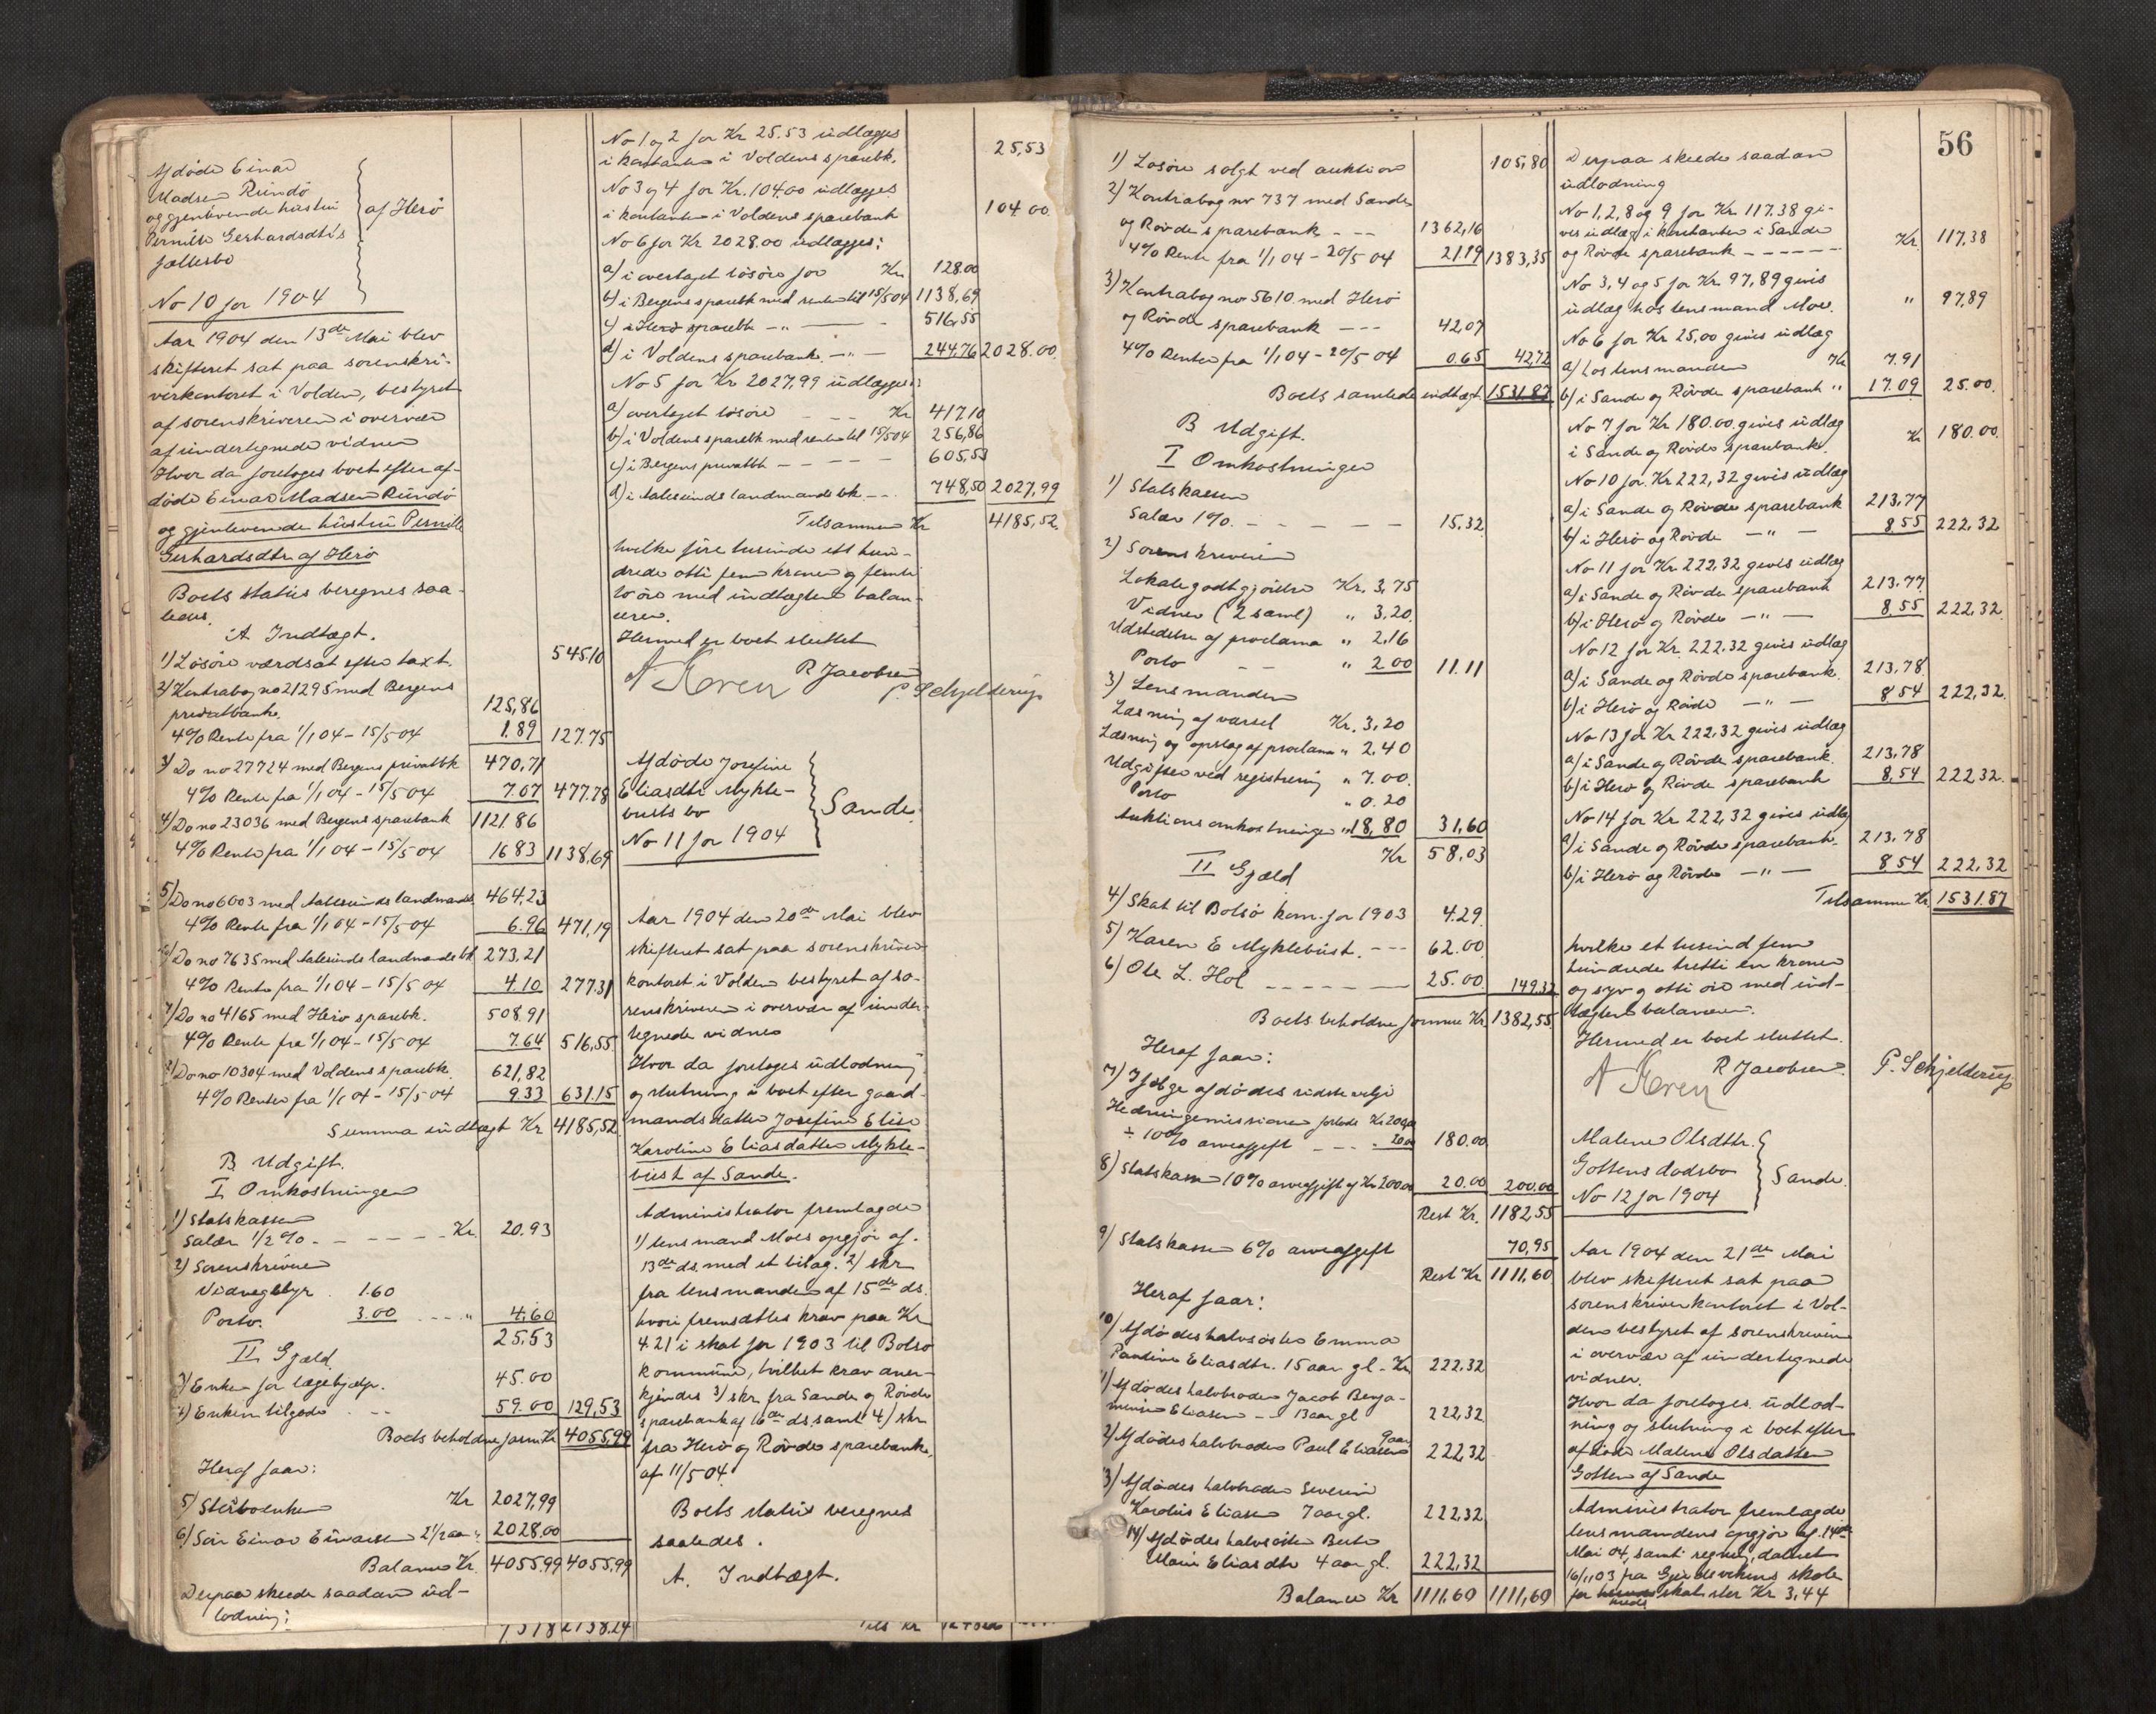 Afdøde Einar
Madsen Rundö
og gjenlevende hustru
Pernille Gerhardsdtrs
fællesbo
af Herö
No 10 for 1904
Aar 1904 den 13de Mai blev
skifteret sat paa sorenskri-
verkontoret i Volden, bestyret
af sorenskriveren i overvær
af undertegnede vidner
Hvor da foretoges boet efter af-
døde Einar Madsen Rundö
og gjenlevende hustru Pernille
Gerhardsdtr af Herö
Boets status beregnes saa-
ledes.
A. Indtægt.
1) Lösöre værdsat efter taxt. 545.10
2) Kontrabog no 21295 med Bergens
privatbank. 125,86
4% Rente fra 1/1 04 - 15/5 04 1.89 127.75
3) Do no 27724 med Bergens privatbk 470,71
4% Rente fra 1/1 04 - 15/5 04 7.07 477.78
4) Do no 23036 med Bergens sparebank 1121.86
4% Rente fra 1/1 04 - 15/5 04 16.83 1138,69
5) Do no 6003 med Aalesunds landmandsbk 464,23
4% Rente fra 1/1 04 - 15/5 04 6.96 471,19
6) Do no 7635 med Aalesunds landmandsbk 273,21
4% Rente fra 1/1 04 - 15/5 04 4.10 277.31
7) Do no 4165 med Herö sparebk. 508.91
4% Rente fra 1/1 04 - 15/5 04 7.64 516,55
8) Do no 10304 med Voldens sparebk. 621,82
4% Renter fra 1/1 04 - 15/5 04 9.33 631.15
Summa indtægt Kr 4185,52
B Udgift.
I Omkostninger
1) Statskassen
Salær 1/2% - - - - - Kr. 20.93
2) Sorenskriveren
Vidnegebyr . 1.60
Porto. 3.00 - - - " 4,60
25,53
II Gjæld
3) Enken for lægehjælp. 45.00
4) Enkens tilgode . - - 59.00 129,53
Boets beholdne form. Kr 4055,99
Heraf faar:
5) Stervboenken Kr 2027,99
6) Søn Einar Einarsen 2 1/2 aar " 2028.00
Balance Kr. 4055.99 4055,99
Derpaa skeede saadan ud-
lodning:
No 1 og 2 for Kr 25.53 udlægges
i kontanter i Voldens sparebk. 25,53
No 3 og 4 for Kr. 104.00 udlægges
i kontanter i Voldens sparebank 104.00.
No 6 for Kr 2028.00 udlægges:
a) i overtaget lösöre for Kr. 128.00
b) i Bergens sparebk med renter til 15/5 04 1138,69
c) i Herö sparebk - " - - 516,55
d) i Voldens sparebank. - " - 244,76 2028.00.
No 5 for Kr 2027,99 udlægges:
a) overtaget lösöre - - Kr 417,10
b) i Voldens sparebk med renter til 15/5 04 256,86
c) i Bergens privatbk - - - - 605,53
d) i Aalesunds landmandsbk - - . 748,50 2027,99
Tilsammen Kr 4185,52.
hvilke fire tusinde ett hun-
drede otti fem kroner og femti
to öre med indtægten balan-
cerer.
Hermed er boet sluttet
A Koren R Jacobsen P. Schjelderup
Afdøde Josefine
Eliasdtr Mykle-
busts bo
No 11 for 1904
Sande.
Aar 1904 den 20de Mai blev
skifteret sat paa sorenskriver-
kontoret i Volden bestyret af so-
renskriveren i overvær af under-
tegnede vidner
Hvor da foretoges udlodning
og slutning i boet efter gaard-
mandsdatter Josefine Elise
Karoline Eliasdatter Mykle-
bust af Sande.
Administrator fremlagde
1) lensmand Moes opgjör af
13de ds. med et bilag. 2) skr
fra lensmanden af 15de ds.
hvori fremsættes krav paa Kr
4.21 i skat for 1903 til Bolsö
kommune, hvilket krav aner-
kjendes 3) skr. fra Sande og Rövde
sparebank af 16de ds. samt 4) skr
fra Herö og Rövde sparebank,
af 11/5 04.
Boets status beregnes
saaledes.
A. Indtægt.
56
1) Lösöre solgt ved auktion 105,80
2) Kontrabog no 737 med Sande
og Rövde sparebank - - - 1362,16
4% Rente fra 1/1 04 - 20/5 04 21.19 1383,35
3) Kontrabog no 5610 med Herö
og Rövde sparebank - - - 42,07
4% Renter fra 1/1 04 - 20/5 04 0.65 42,72
Boets samlede indtægt 1531.87
B Udgift.
I Omkostninger
1) Statskassen
Salær 1%. - - - - - 15.32
2) Sorenskriveren
Lokalegodtgjörelse Kr. 3,75
Vidner (2 saml) " 3,20.
Udstedelse af proclama " 2,16
Porto - - " 2.00 11.11
3) Lensmanden
Læsning af varsel Kr. 3,20
Læsning og opslag af proclama " 2,40
Udgifter ved registrering " 7.00.
Porto " 0.20
Auktionsomkostninger " 18,80 31,60
Kr 58,03
II Gjæld
4) Skat til Bolsö kom. for 1903 4.29
5) Karen E Myklebust. - - - 62.00
6) Ole L. Hol - - - - - - 25.00 149.32
Boets beholdne formue Kr. 1382,55
Heraf faar:
7) Ifölge afdödes sidste vilje
Hedningemissionen Kr 200,00
÷ 10% arveafgift - - - . 20.00 180.00.
8) Statskassen 10% arveafgift af Kr 200.00 20.00 200.00
Rest Kr. 1182,55
9) Statskassen 6% arveafgift 70,95
Rest Kr 1111.60
Heraf faar:
10) Afdødes halvsöster Emma
Pauline Eliasdtr. 15 aar gl - Kr 222,32
11) Afdödes halvbroder Jacob Benja-
minsen Eliasen - - 13 aar gl 222,32.
12) Afdödes halvbroder Paul Eliasen 9 aar 222,32
13) Afdödes halvbroder Severin
Karolus Eliasen 7 aar gl. 222,32
14) Afdödes halvsöster Berte
Marie Eliasdtr 4 aar gl. 222,32
Balance Kr 1111,60 1111,60
Derpaa skeede saadan
udlodning
No 1, 2, 8 og 9 for Kr. 117.38 gi-
ves udlæg i kontanter i Sande
og Rövde sparebank - - - - - Kr. 117,38
No 3, 4 og 5 for Kr. 97,89 givis
udlæg hos lensmand Moe. " 97,89
No 6 for Kr 25,00 givis udlæg
a) hos lensmanden Kr 7.91
b) i Sande og Rövde sparebank " 17.09 25.00.
No 7 for Kr 180.00. givis udlæg
i Sande og Rövde sparebank. Kr 180.00.
No 10 for Kr 222,32 givis udlæg
a) i Sande og Rövde sparebank 213,77
b) i Herö og Rövde - " - 8,55 222,32
No 11 for Kr. 222,32 givis udlæg
a) i Sande og Rövde sparebank 213,77
b) i Herö og Rövde - " - 8,55 222,32.
No 12 for Kr. 222.32 givis udlæg
a) i Sande og Rövde sparebank. 213,78.
b) i Herö og Rövde - " - 8.54 222,32.
No 13 for Kr 222,32 givis udlæg
a) i Sande og Rövde sparebank. 213,78
b) i Herö og Rövde sparebank 8,54 222,32.
No 14 for Kr. 222,32 givis udlæg
a) i Sande og Rövde sparebank. 213,78
b) i Herö og Rövde - " - 8.54 222,32
Tilsammen Kr. 1531.87
hvilke et tusind fem
hundrede tretti en kroner
og syv og otti öre med ind-
tægten balancerer.
Hermed er boet sluttet.
A Koren R Jacobsen. P. Schjelderup
Malene Olsdtr.
Gottens dødsbo
No 12 for 1904
Sande.
Aar 1904 den 21de Mai
blev skifteret sat paa
sorenskriverkontoret i Vol-
den bestyret af sorenskriveren
i overvær af undertegnede
vidner.
Hvor da foretoges udlod-
ning og slutning i boet efter
afdöde Malene Olsdatter
Gotten af Sande
Administrator fremlagde
lensmandens opgjör af 14de
Mai 04, samt regning, dateret
16/11 03 fra skole
for skat stor Kr 3,44